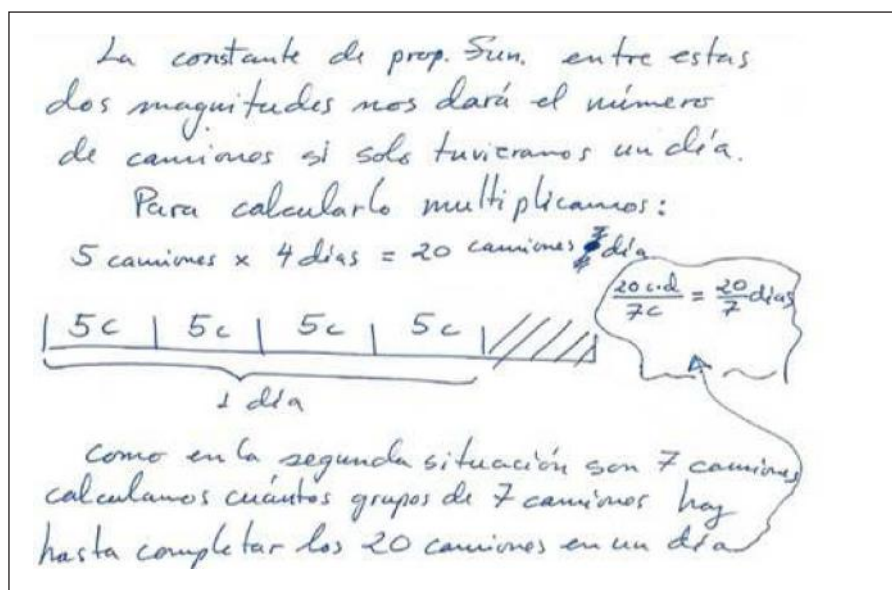 La constante de prop. Fun. entre estas
dos magnitudes nos dará el número
de camiones si solo tuvieramos un día.
Para calcularlo multiplicamos:
5 camiones x 4 días = 20 camiones día
20 c·d / 7c = 20/7 días
5c 5c 5c 5c
1 día
como en la segunda situación son 7 camiones
calculamos cuántos grupos de 7 camiones hay
hasta completar los 20 camiones en un día